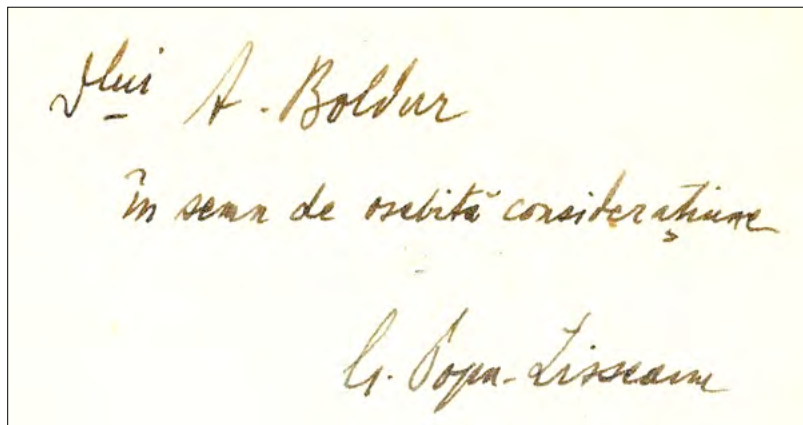 Dlui A. Boldur
în semn de osebită considerațiune
G. Popa-Lisseanu